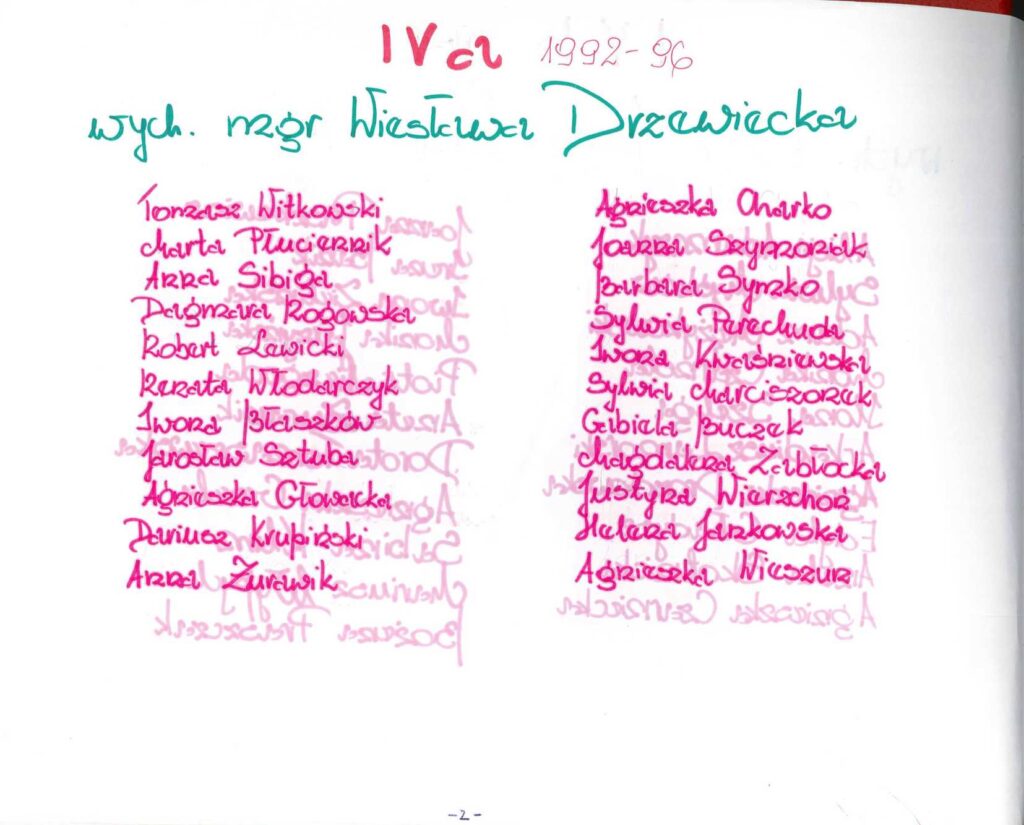 IVa 1992-96
wych. mgr Wiesława Drzewiecka
Tomasz Witkowski
Marta Płuciennik
Anna Sibiga
Dagmara Rogowska
Robert Lewicki
Renata Włodarczyk
Iwona Błaszków
Jarosław Sztuba
Agnieszka Głowacka
Dariusz Krupiński
Anna Żurawik
Agnieszka Charko
Joanna Szymoniak
Barbara Symko
Sylwia Perechuda
Iwona Kwaśniewska
Sylwia Marciszonek
Gabiela Buczek
Magdalena Zabłocka
Justyna Wierzchoń
Helena Jankowska
Agnieszka Wieszun
-2-